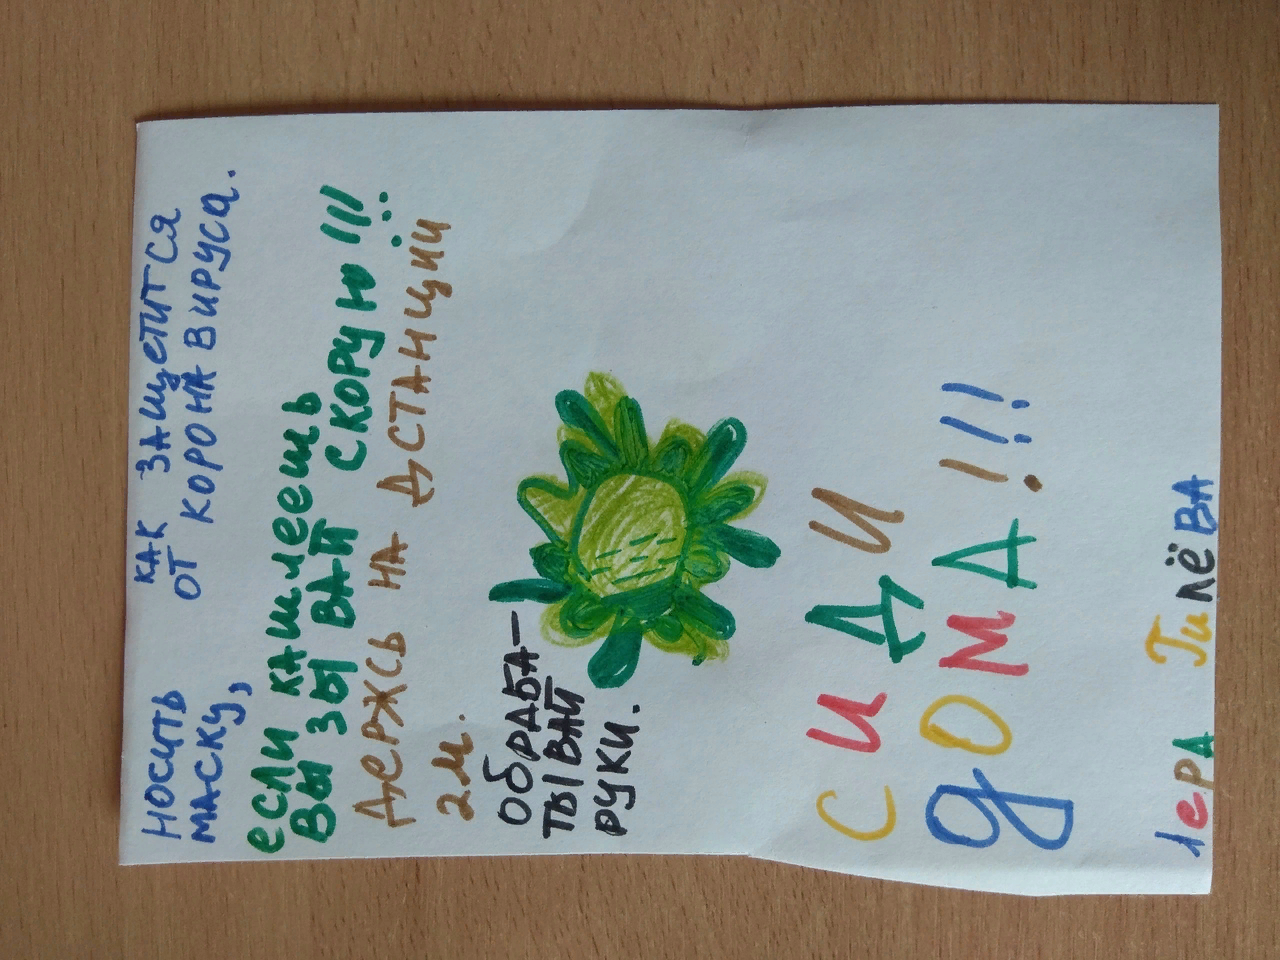 КАК ЗАЩЕТИТСЯ
ОТ КОРОНА ВИРУСА.
НОСИТЬ
МАСКУ,
если кашлеешь
ВЫ ЗЫ ВАЙ СКОРУЮ !!!
Держсь на дстанции
2м.
ОБРАБА-
ТЫВАЙ
РУКИ.
СИДИ
дОМА!!!!
лерА ГилёВА